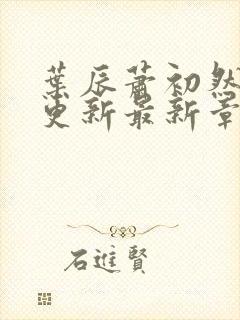 葉辰蕭初然
更新最新章
石進賢